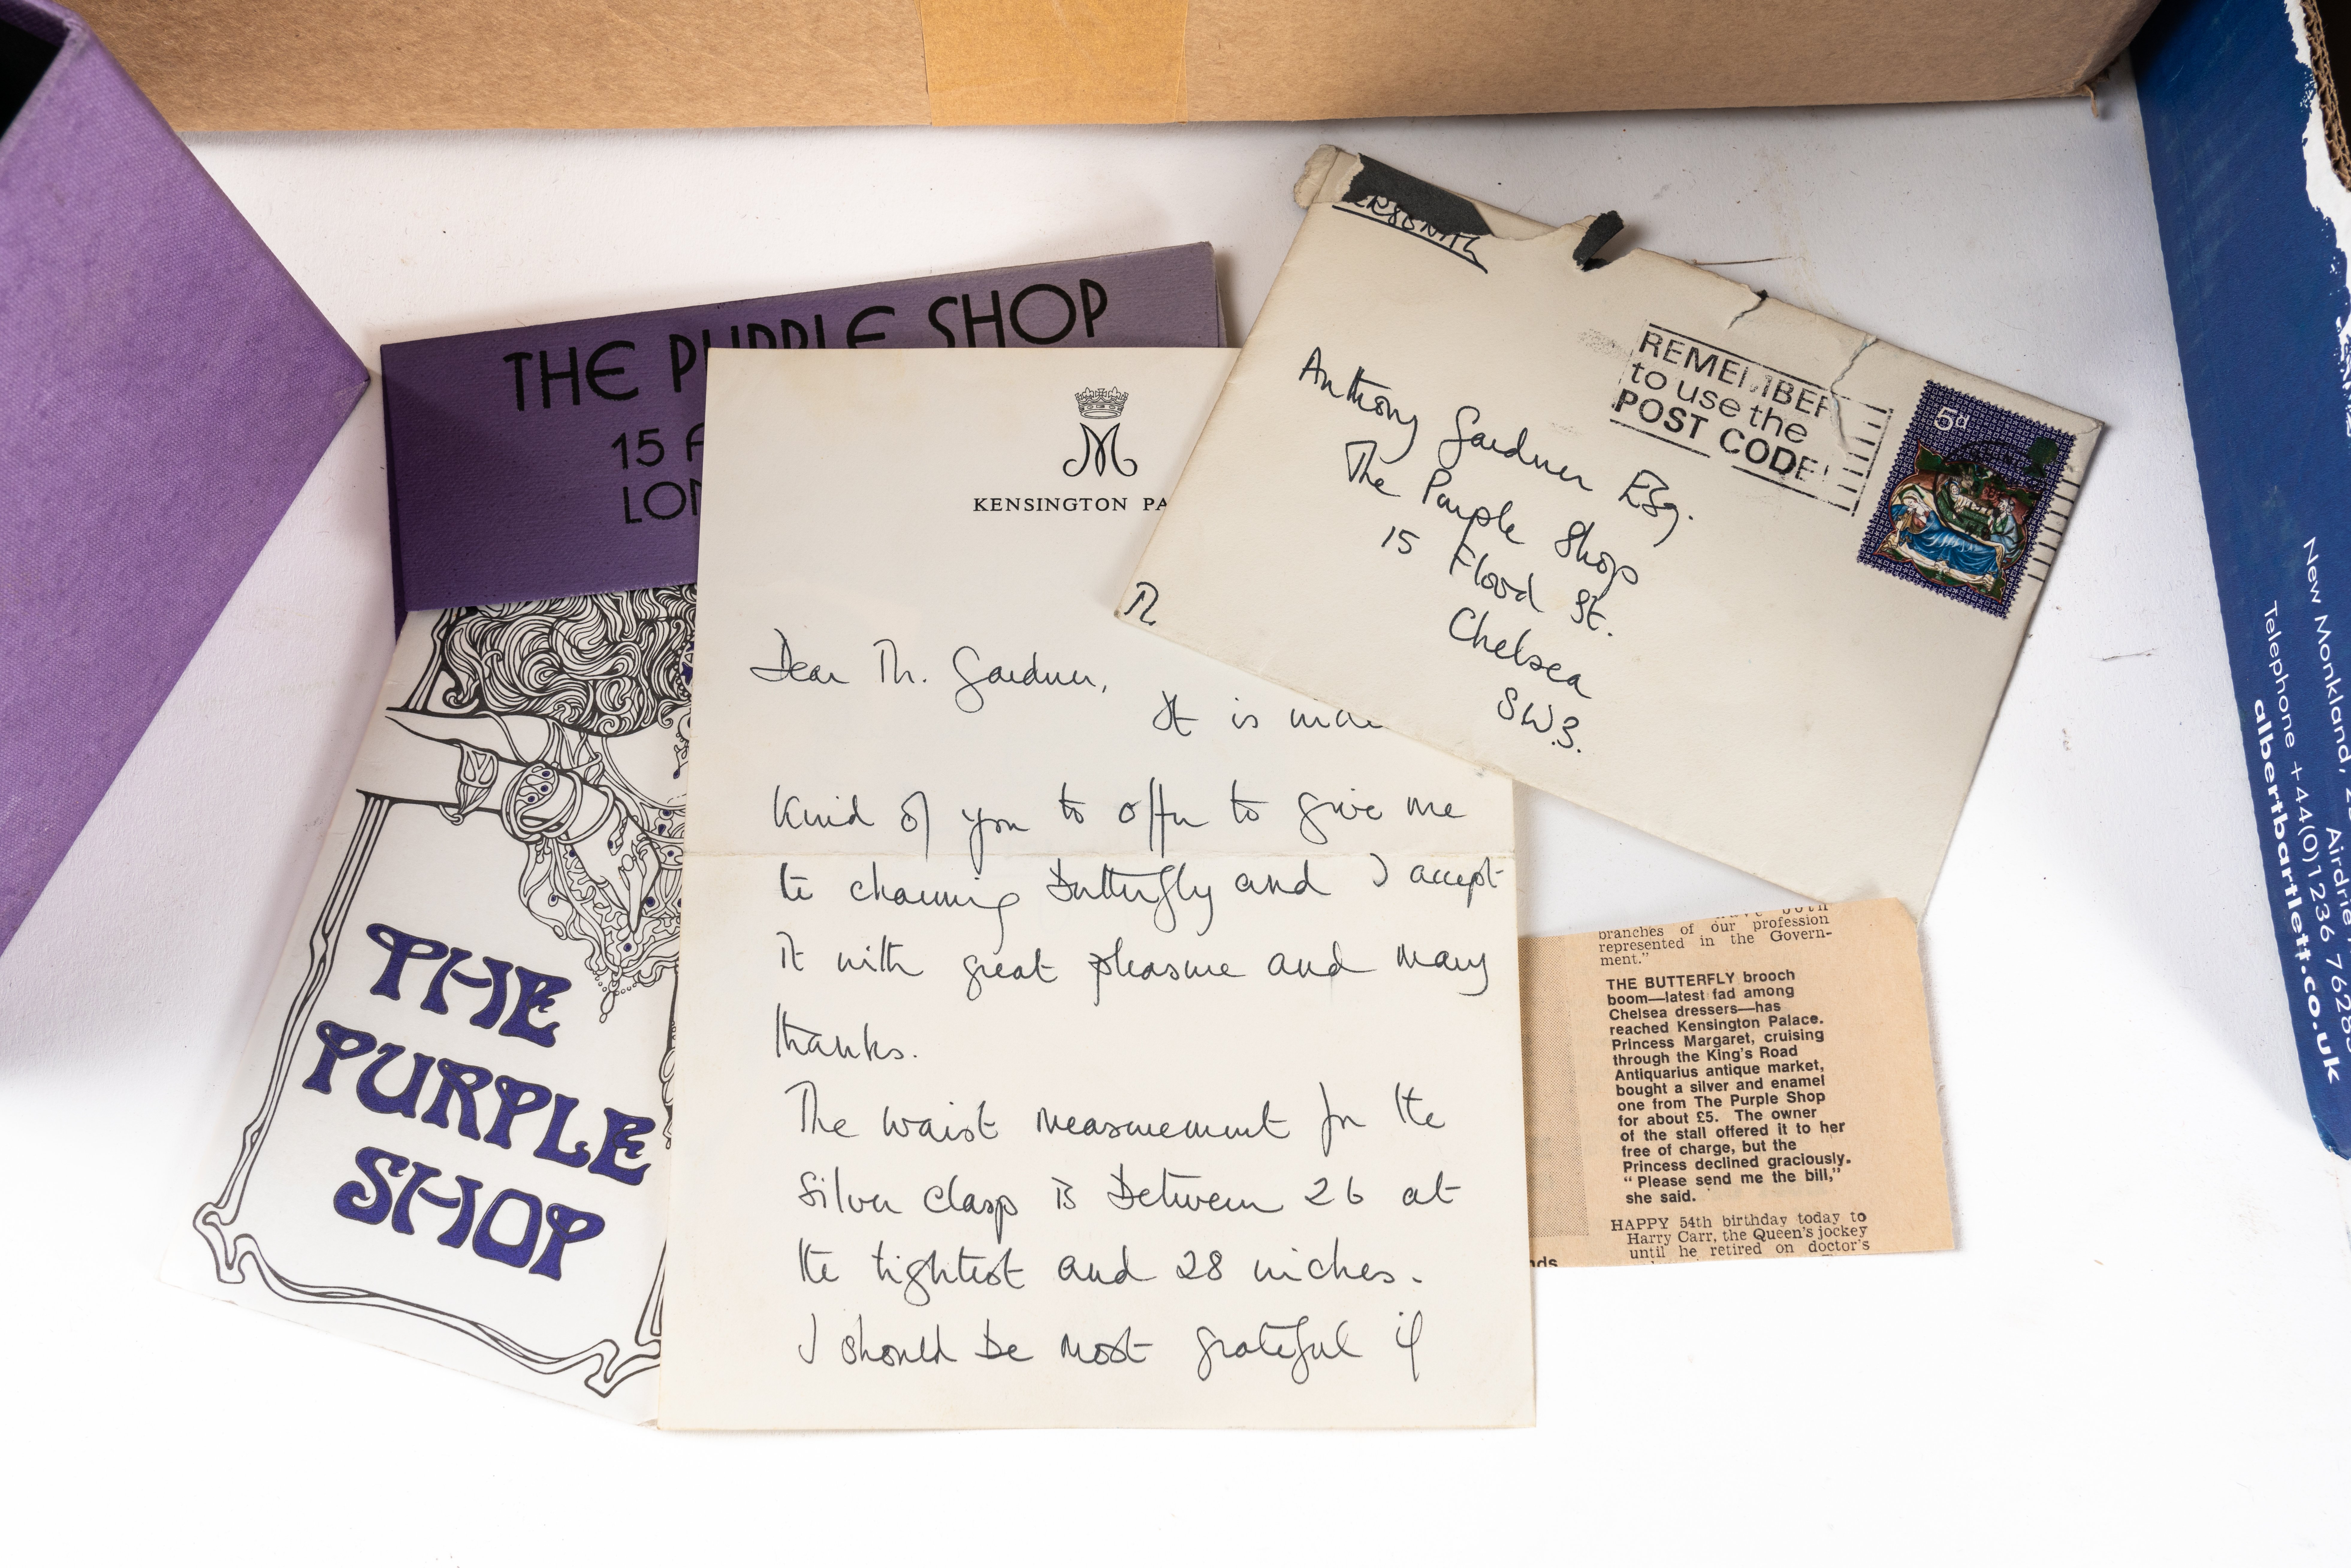 THE PURPLE SHOP
15 F
LON
THE
PURPLE
SHOP
M
KENSINGTON PA
Dear M. Gardner,
It is
kind of you to offer to give me
the charming Butterfly and I accept
it with great pleasure and many
thanks.
The waist measurement for the
silver clasp is between 26 at
the tightest and 28 inches.
I should be most grateful if
PERSONAL
Anthony Gardner Esq.
The Purple Shop
15 Flood St.
Chelsea
SW.3.
M
REMEMBER
to use the
POST CODE
5d
branches of our profession
represented in the Govern-
ment."
THE BUTTERFLY brooch
boom—latest fad among
Chelsea dressers—has
reached Kensington Palace.
Princess Margaret, cruising
through the King's Road
Antiquarius antique market,
bought a silver and enamel
one from The Purple Shop
for about £5. The owner
of the stall offered it to her
free of charge, but the
Princess declined graciously.
"Please send me the bill,"
she said.
HAPPY 54th birthday today to
Harry Carr, the Queen's jockey
until he retired on doctor's
nds
New Monkland,
Airdrie
Telephone +44(0)1236 762831
albertbartlett.co.uk